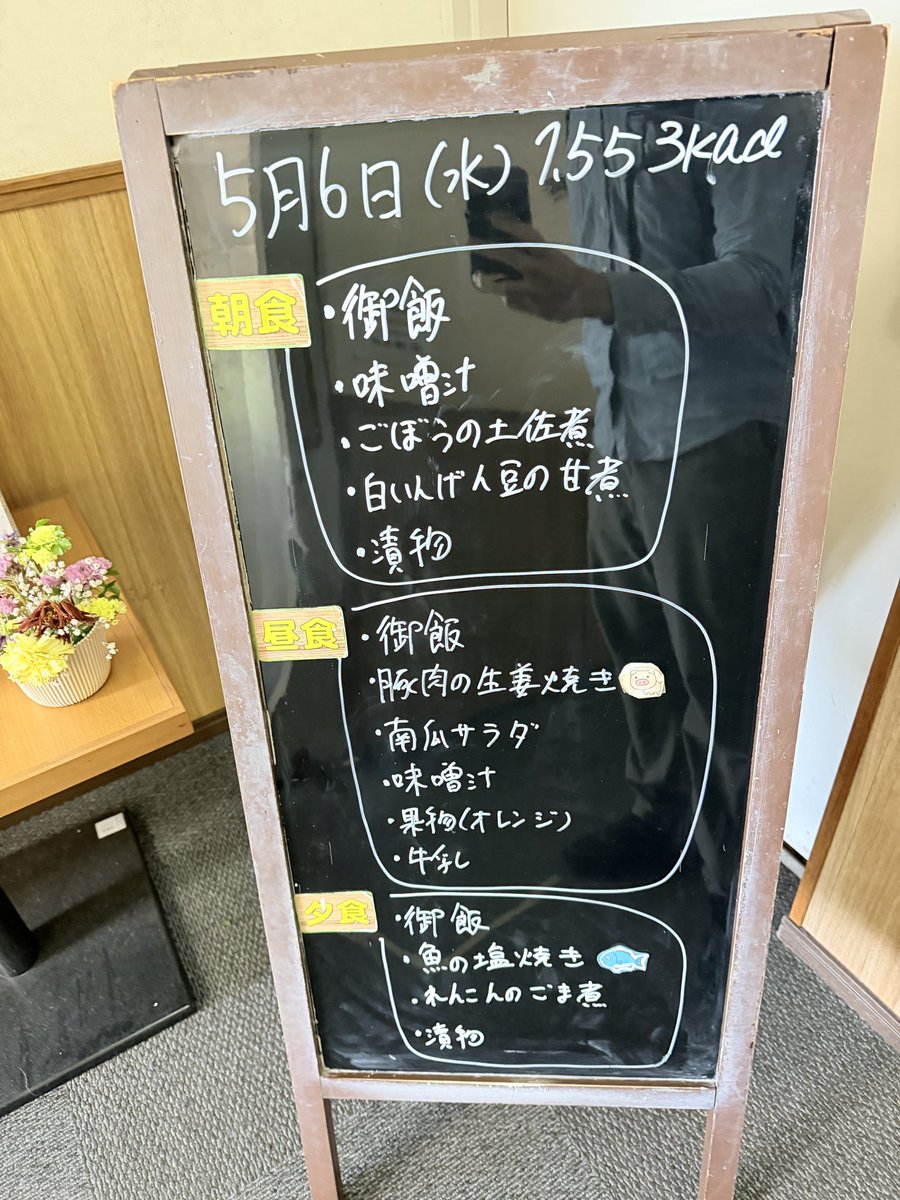 5月6日(水) 1.553kcal
朝食
・御飯
・味噌汁
・ごぼうの土佐煮
・白いんげん豆の甘煮
・漬物
昼食
・御飯
・豚肉の生姜焼き
・南瓜サラダ
・味噌汁
・果物(オレンジ)
・牛乳
夕食
・御飯
・魚の塩焼き
・れんこんのごま煮
・漬物